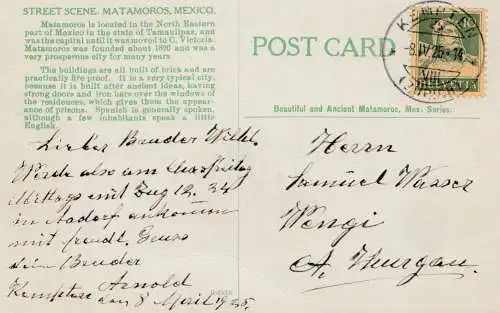 STREET SCENE. MATAMOROS, MEXICO.
Matamoros is located in the North Eastern
part of Mexico in the state of Tamaulipas, and
was the capital until it was moved to C. Victoria.
Matamoros was founded about 1820 and was a
very prosperous city for many years.
The buildings are all built of brick and are
practically fire proof. It is a very typical city,
because it is built after ancient ideas, having
strong doors and iron bars over the windows of
the residences, which gives them the appear-
ance of prisons. Spanish is generally spoken,
although a few inhabitants speak a little
English.
POST CARD
Beautiful and Ancient Matamoros, Mex. Series.
KEMPTEN
-8.IV.25.-14
VIII
HELVETIA
Lieber Bruder Wilh.
Werde also am Charfreitag
Mittags mit Zug 12.34
in Aadorf ankommen
mit freudl. Gruss
dein Bruder
Arnold
Kempten den 8 April 1925.
Herrn
Samuel Wasser
Wengi
Thurgau.